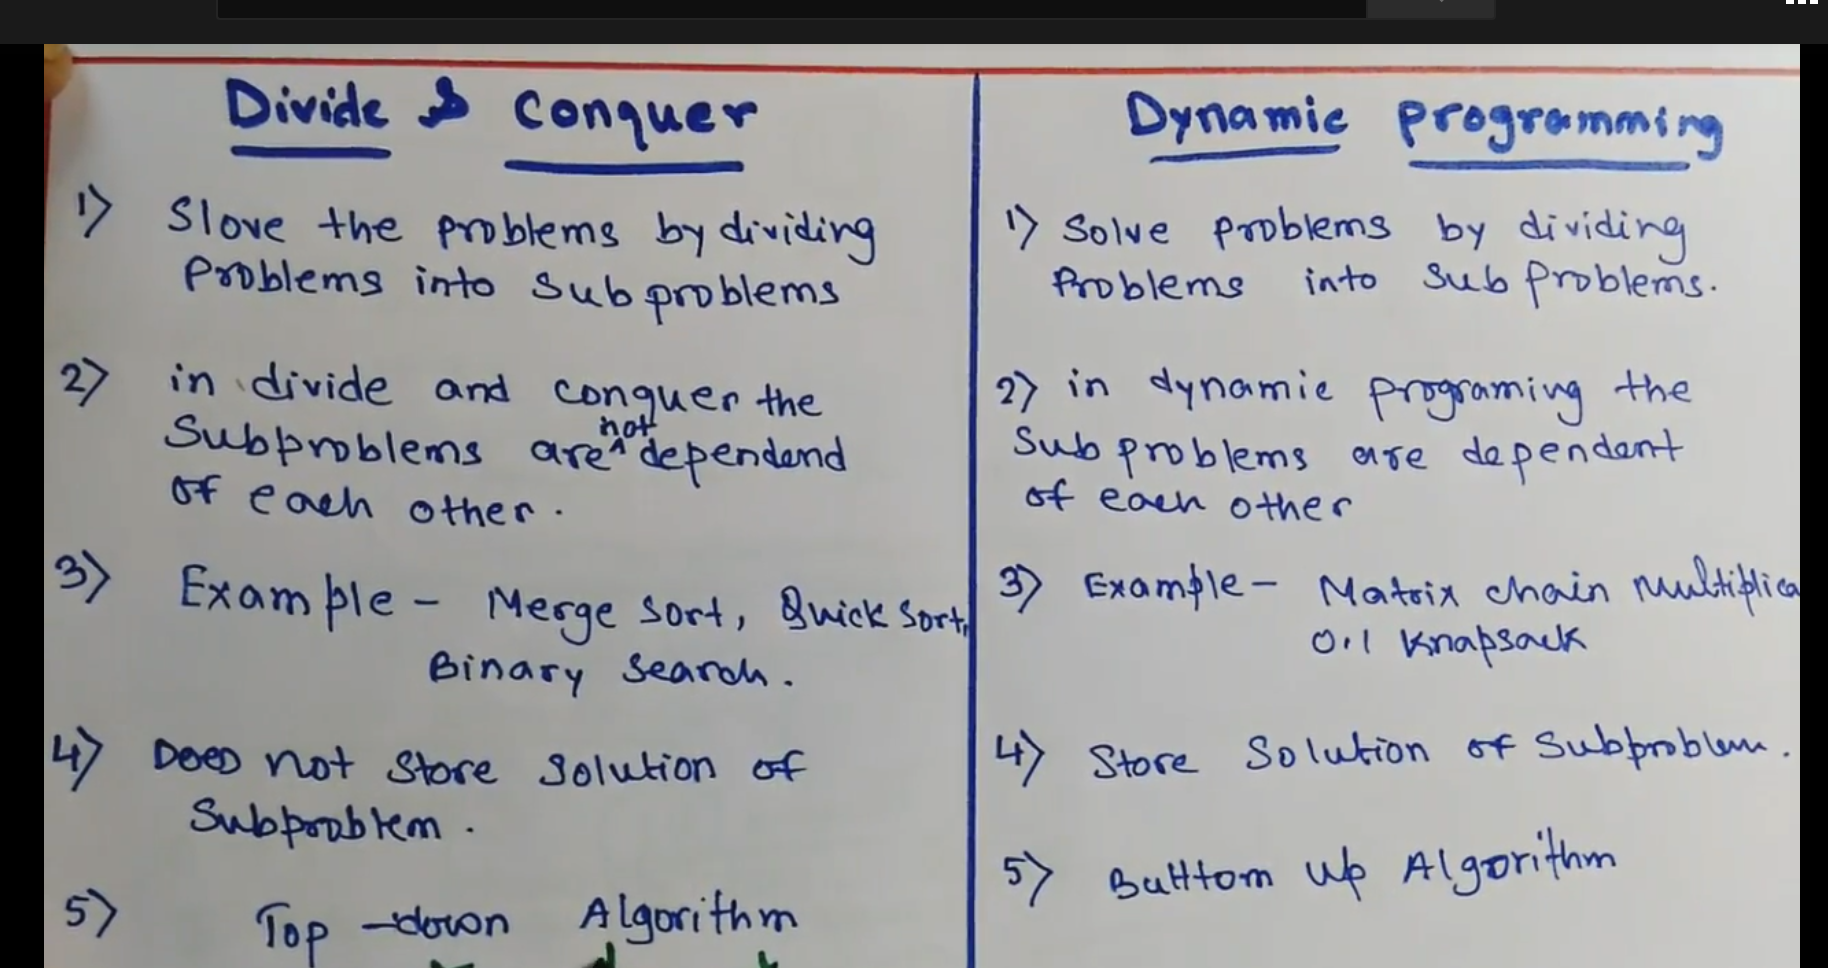 Divide & Conquer
1) Slove the problems by dividing
Problems into Subproblems
2) in divide and conquer the
Subproblems are not dependend
of each other.
3) Example - Merge sort, Quick sort,
Binary Search.
4) Does not store solution of
Subproblem.
5) Top-down Algorithm
Dynamic programming
1) Solve problems by dividing
Problems into Sub Problems.
2) in dynamic programing the
Sub problems are dependent
of each other
3) Example - Matrix chain Multiplica
0.1 Knapsack
4) Store Solution of Subproblem.
5) Buttom Up Algorithm